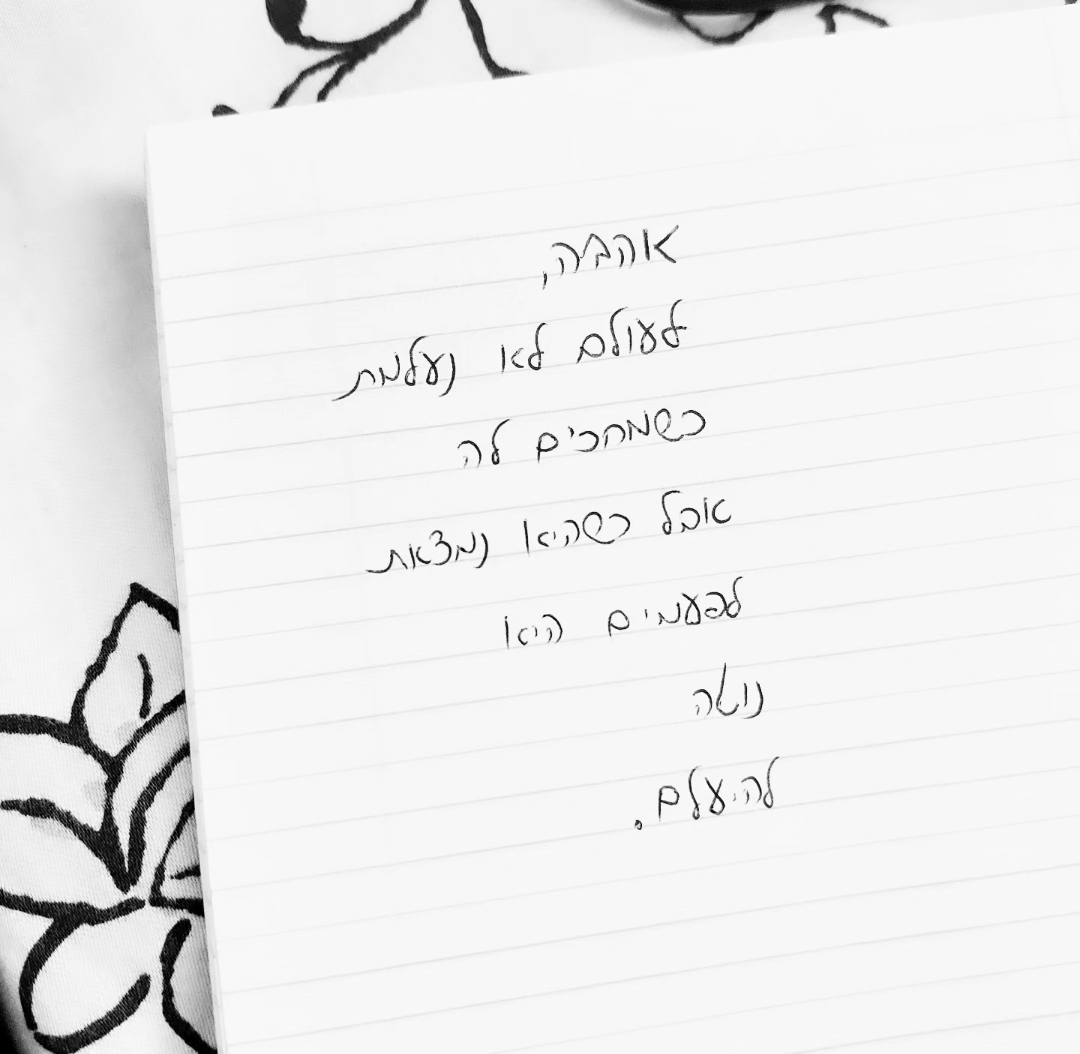 אהבה,
לעולם לא נעלמת
כשמחכים לה
אבל כשהיא נמצאת
לפעמים היא
נוטה
להיעלם.